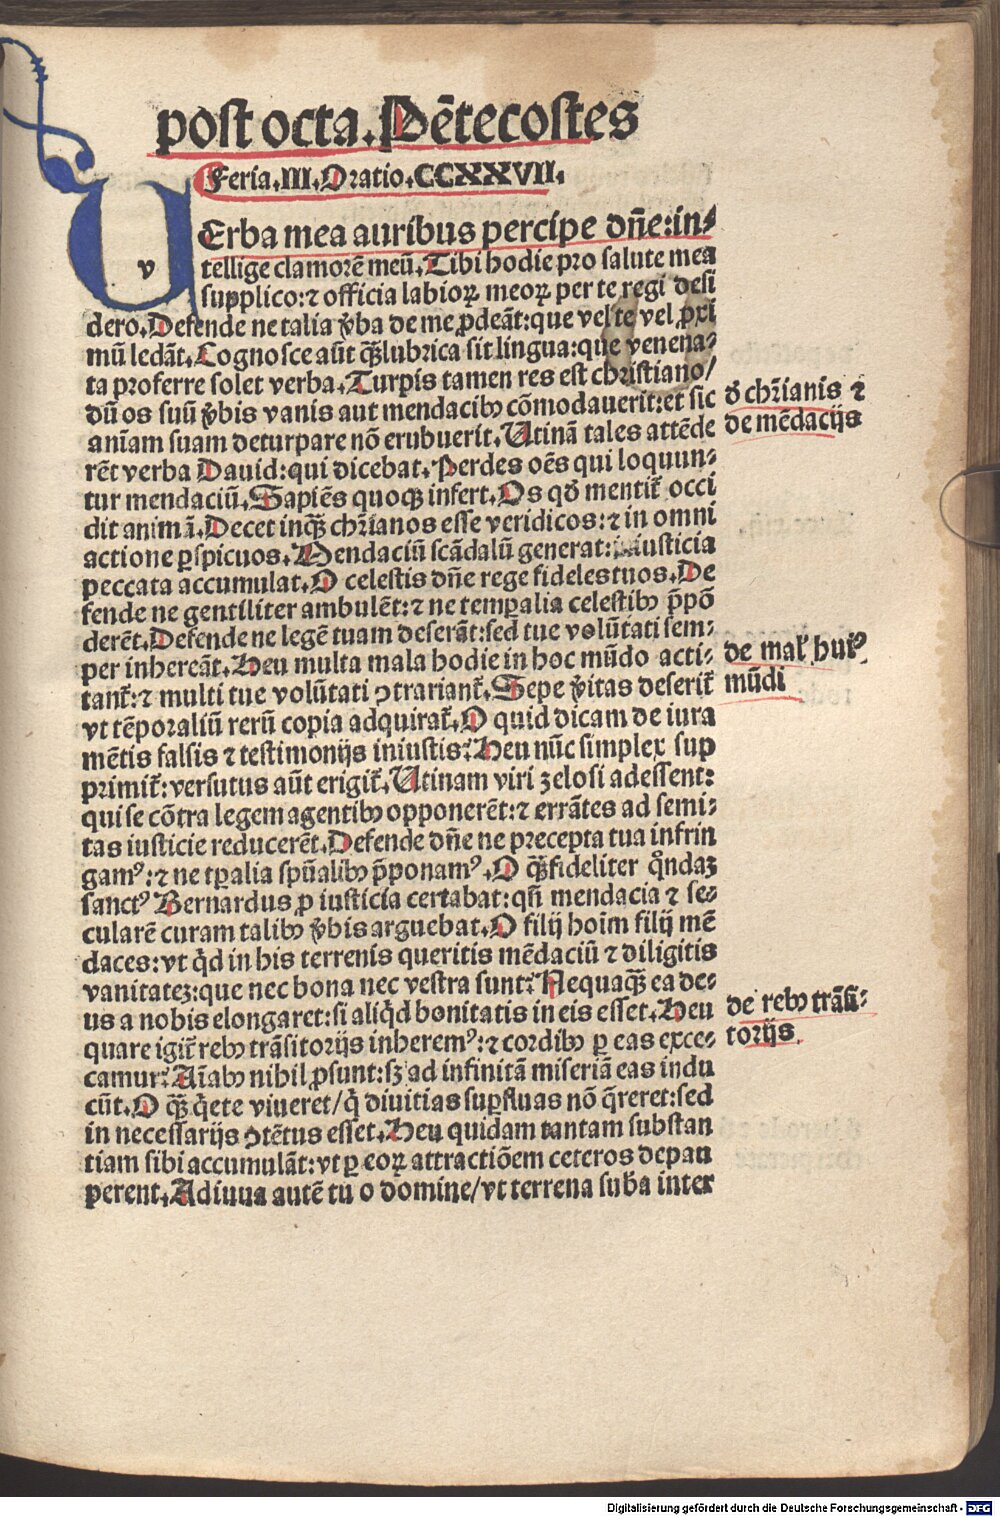 post octa. Pe̅tecostes
Feria. III. Oratio. CCXXVII.
VErba mea auribus percipe dn̅e: in⸗
v
tellige clamore̅ meu̅. Tibi hodie pro salute mea
supplico: ⁊ officia labioꝝ meoꝝ per te regi desi
dero. Defende ne talia v̾ba de me ꝓdea̅t: que vel te vel ꝓxi
mu̅ leda̅t. Cognosce au̅t qꝫ̅ lubrica sit lingua: que venena⸗
ta proferre solet verba. Turpis tamen res est christiano/
du̅ os suu̅ v̾bis vanis aut mendacibꝰ co̅modauerit: et sic
ani̅am suam deturpare no̅ erubuerit. Utina̅ tales atte̅de
re̅t verba Dauid: qui dicebat. Perdes oe̅s qui loquun⸗
tur mendaciu̅. Sapie̅s quoqꝫ infert. Os qd̾ mentit᷑ occi
dit anima̅. Decet inqꝫ̅ chr̅ianos esse veridicos: ⁊ in omni
actione ꝑspicuos. Mendaciu̅ sca̅dalu̅ generat: iniusticia
peccata accumulat. O celestis dn̅e rege fideles tuos. De
fende ne gentiliter ambule̅t: ⁊ ne temꝑalia celestibꝰ p̅po̅
dere̅t. Defende ne lege̅ tuam desera̅t: sed tue volu̅tati sem⸗
per inherea̅t. Heu multa mala hodie in hoc mu̅do acti⸗
tant᷑: ⁊ multi tue volu̅tati ꝯtrariant᷑. Sepe v̾itas deserit᷑
vt te̅poraliu̅ reru̅ copia adquirat᷑. O quid dicam de iura
me̅tis falsis ⁊ testimonijs iniustis? Heu nu̅c simplex sup
primit᷑: versutus au̅t erigit᷑. Utinam viri zelosi adessent:
qui se co̅tra legem agentibꝰ opponere̅t: ⁊ erra̅tes ad semi⸗
tas iusticie reducere̅t. Defende dn̅e ne precepta tua infrin
gamꝰ: ⁊ ne tꝑalia spu̅alibꝰ p̅ponamꝰ. O qꝫ̅ fideliter q̊ndaꝫ
sanctꝰ Bernardus ꝓ iusticia certabat: qn̅ mendacia ⁊ se⸗
culare̅ curam talibꝰ v̾bis arguebat. O filij hoi̅m filij me̅
daces: vt qͥd in his terrenis queritis me̅daciu̅ ⁊ diligitis
vanitateꝫ: que nec bona nec vestra sunt? Nequaqꝫ̅ ea de⸗
us a nobis elongaret: si aliqͥd bonitatis in eis esset. Heu
quare igit᷑ rebꝰ tra̅sitorijs inheremꝰ: ⁊ cordibꝰ ꝑ eas exce⸗
camur? Ai̅abꝰ nihil ꝓsunt: sꝫ ad infinita̅ miseria̅ eas indu
cu̅t. O qꝫ̅ qͥete viueret/ qͥ diuitias suꝑfluas no̅ q̅reret: sed
in necessarijs ꝯte̅tus esset. Heu quidam tantam substan
tiam sibi accumula̅t: vt ꝑ eoꝝ attractio̅em ceteros depau
perent. Adiuua aute̅ tu o domine/ vt terrena sub̾a inter
d̾ chr̅ianis ⁊
de me̅dacijs
de mal᷑ huiꝰ
mu̅di
de rebꝰ tra̅si⸗
torijs.
Digitalisierung gefördert durch die Deutsche Forschungsgemeinschaft - DFG